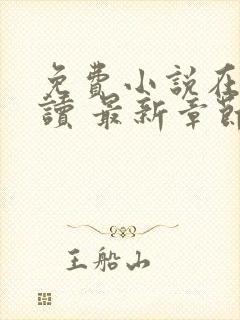 免費小說在
讀 最新章節
王船山